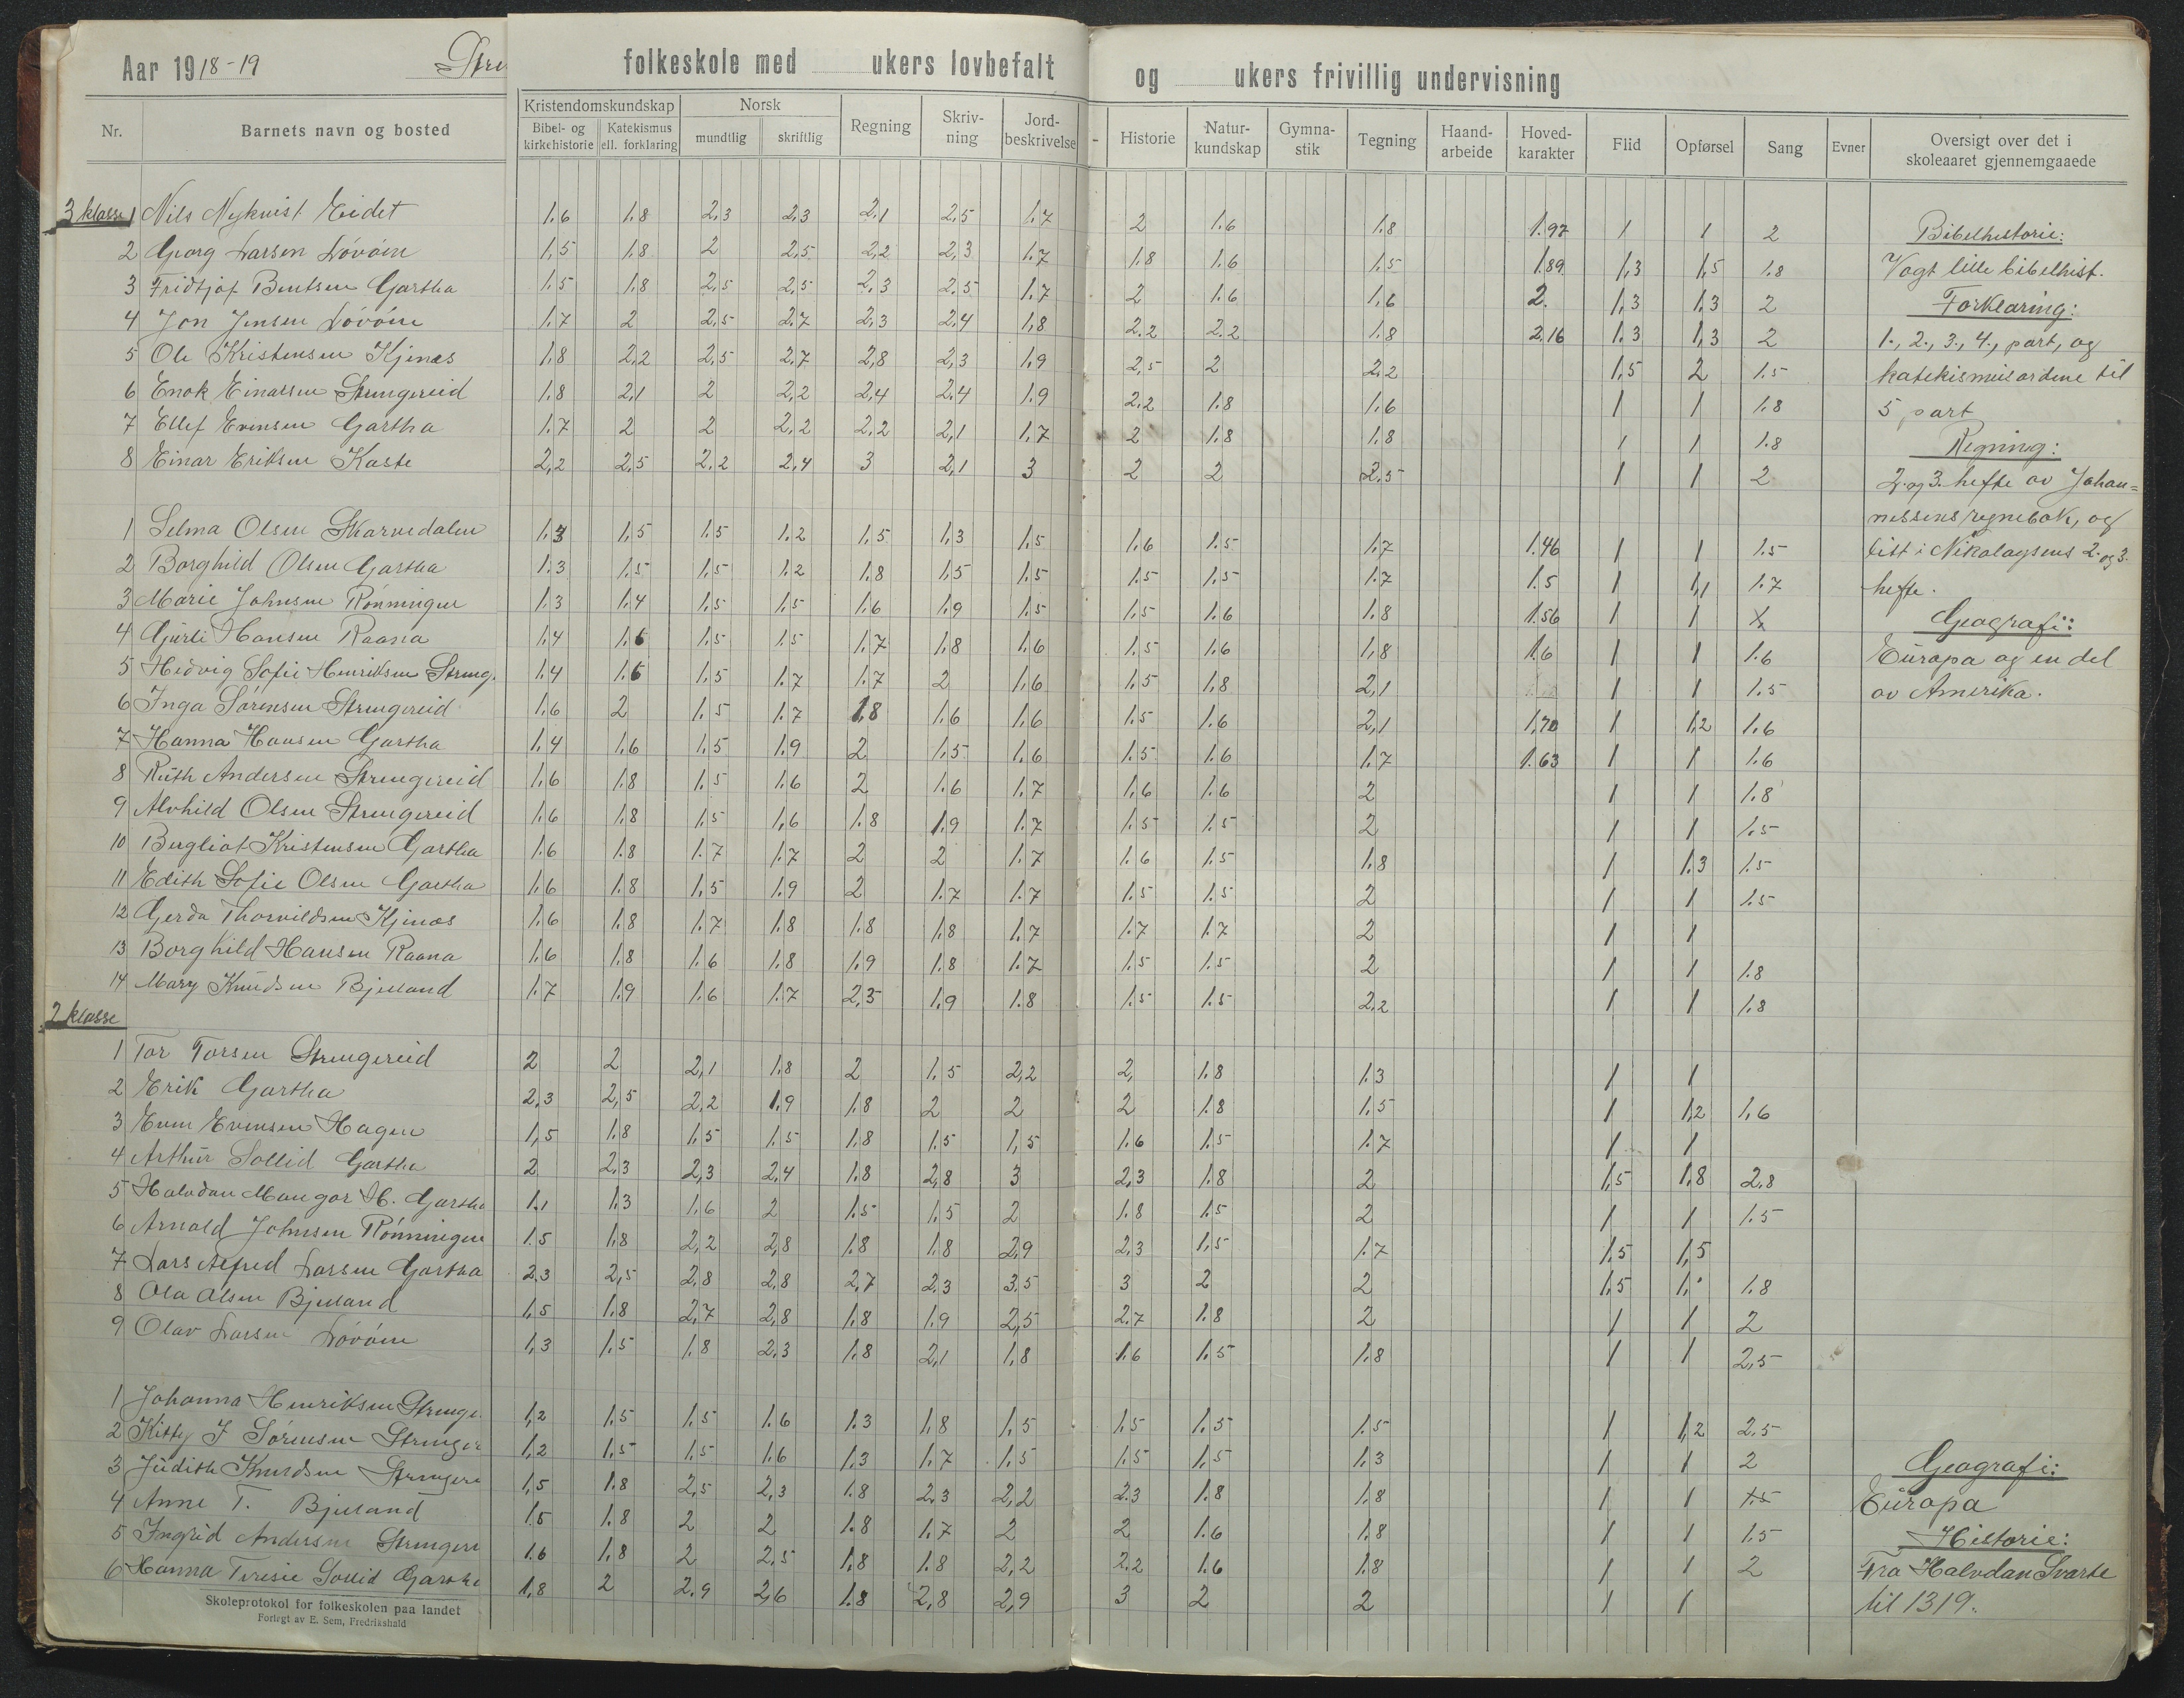 Aar 1918-19 Stre folkeskole med ukers lovbefalt og ukers frivillig undervisning
Nr. Barnets navn og bosted Kristendomskundskap Bibel- og kirkehistorie Katekismus ell. forklaring Norsk mundtlig skriftlig Regning Skriv-ning Jord-beskrivelse - Historie Natur-kundskap Gymna-stik Tegning Haand-arbeide Hoved-karakter Flid Opførsel Sang Evner Oversigt over det i skoleaaret gjennemgaaede
3 klasse 1 Nils Nykvist Eidet 1.6 1.8 2,3 2,3 2,1 2,5 1.7 2 1.6 1.8 1.97 1 1 2 Bibelhistorie:
2 Georg Larsen Lövåsen 1,5 1.8 2 2,5 2,2 2,3 1.7 1.8 1.6 1.5 1.89 1,3 1,5 1.8 Vogt lille bibelhist.
3 Fridtjof Bentsen Gartha 1.5 1.8 2,5 2,5 2,3 2.5 1.7 2 1.6 1.6 2. 1,3 1.3 2 Forklaring:
4 Jon Jensen Lövåsen 1.7 2 2,5 2.7 2,3 2,4 1,8 2.2 2.2 1.8 2.16 1.3 1,3 2 1., 2., 3., 4., part, og
5 Ole Kristensen Kjenæs 1,8 2,2 2,5 2.7 2,8 2,3 1.9 2,5 2 2.2 1,5 2 1.5 katekismusordene til
6 Enok Einarsen Strengereid 1.8 2,1 2 2,2 2,4 2.4 1.9 2.2 1.8 1.6 1 1 1.8 5 part
7 Ellef Evensen Gartha 1.7 2 2 2,2 2,2 2,1 1,7 2 1.8 1.8 1 1 1.8 Regning:
8 Einar Eriksen Kaste 2,2 2,5 2,2 2,4 3 2,1 3 2 2 2.5 1 1 2 2. og 3. hefte av Johan=
nessens regnebok, og
1 Selma Olsen Skarvedalen 1.3 1,5 1.5 1.2 1.5 1,3 1,5 1.6 1.5 1.7 1.46 1 1 1.5 litt i Nikolaysens 2. og 3.
2 Borghild Olsen Gartha 1.3 1.5 1.5 1.2 1.8 1,5 1.5 1.5 1.5 1.7 1.5 1 1,1 1.7 hefte.
3 Marie Johnsen Rönningen 1.3 1.4 1.5 1.5 1.6 1.9 1.5 1.5 1.6 1.8 1.56 1 1 Geografi:
4 Gurli Hansen Raana 1.4 1.6 1.5 1.5 1.7 1.8 1.6 1.5 1.6 1,8 1.6 1 1 1.6 Europa og en del
5 Hedvig Sofie Henriksen Streng. 1.4 1.6 1.5 1.7 1.7 2 1.6 1.5 1,8 2,1 1 1 1.5 av Amerika.
6 Inga Sörensen Strengereid 1.6 2 1.5 1.7 1.8 1.6 1.6 1.5 1.6 2,1 1,70 1 1,2 1.6
7 Hanna Hansen Gartha 1.4 1.6 1.5 1.9 2 1.5 1.6 1.5 1.6 1.7 1.63 1 1 1.6
8 Ruth Andersen Strengereid 1.6 1.8 1.5 1.6 2 1.6 1.7 1.6 1.6 2 1 1 1.8
9 Alvhild Olsen Strengereid 1.6 1.8 1.5 1,6 1.8 1.9 1.7 1.5 1.5 2 1 1 1.5
10 Bergliot Kristensen Gartha 1.6 1.8 1.7 1.7 2 2 1.7 1.6 1.5 1.8 1 1.3 1.5
11 Edith Sofie Olsen Gartha 1.6 1.8 1.5 1.9 2 1.7 1.7 1.5 1.5 2 1 1 1.5
12 Gerda Thorvildsen Kjenæs 1.6 1.8 1.7 1.8 1.8 1.8 1.7 1.7 1.7 2 1 1
13 Borghild Hansen Raana 1.6 1.8 1.6 1.8 1.9 1.8 1.7 1.5 1.5 2 1 1 1.8
14 Mary Knudsen Bjelland 1.7 1.9 1.6 1.7 2,5 1.9 1.8 1.5 1.5 2,2 1 1 1.8
2 klasse
1 Tor Torsen Strengereid 2 2 2,1 1.8 2 1.5 2,2 2, 1.8 1.3 1 1
2 Erik Gartha 2,3 2,5 2,2 1.9 1.8 2 2 2 1.8 1.5 1 1,2 1.6
3 Even Evensen Hagen 1,5 1.8 1.5 1.5 1.8 1.5 1,5 1.6 1.5 1.7 1 1
4 Arthur Sollid Gartha 2 2.3 2,3 2,4 1.8 2,8 3 2,3 1.8 2 1,5 1,8 2,8
5 Halvdan Mangor H. Gartha 1.1 1.3 1.6 2 1.5 1.5 2 1.8 1.5 2 1 1 1.5
6 Arnold Johnsen Rönningen 1.5 1.8 2,2 2,8 1.8 1.8 2,9 2,3 1,5 1.7 1,5 1,5
7 Lars Alfred Larsen Gartha 2.3 2,5 2,8 2,8 2,7 2.3 3.5 3 2 2 1,5 1. 1.8
8 Ola Olsen Bjelland 1,5 1.8 2,7 2,8 1.8 1.9 2,5 2.7 1.8 2 1 1 2
9 Olav Larsen Lövåsen 1,3 1.5 1.8 2,3 1.8 2,1 1,8 1.6 1.5 1.8 1 1 2,5
1 Johanna Henriksen Strenge. 1,2 1.5 1.5 1.6 1.3 1,8 1,5 1,5 1.5 1.5 1 1,2 2.5
2 Kitty J Sörensen Strenger 1,2 1.5 1.5 1.6 1.3 1.7 1.5 1.5 1,5 1.3 1 1 2 Geografi:
3 Judith Knudsen Strengere 1,5 1.8 2,5 2,3 1.8 2.3 2,2 2.3 1.8 1.8 1 1 1.5 Europa
4 Anne T. Bjelland 1.5 1.8 2 2 1.8 1.7 2 2 1.6 1.8 1 1 1.5 Historie:
5 Ingrid Andersen Strengere 1.6 1,8 2 2,5 1,8 1.8 2,2 2,2 1.6 1.8 1 1 2 Fra Halvdan Svarte
6 Hanna Terisie Sollid Gartha 1,8 2 2.9 2,6 1.8 2,8 2,9 3 2 2 1 1 til 1319.
Skoleprotokol for folkeskolen paa landet
Forlegt av E. Sem, Fredrikshald